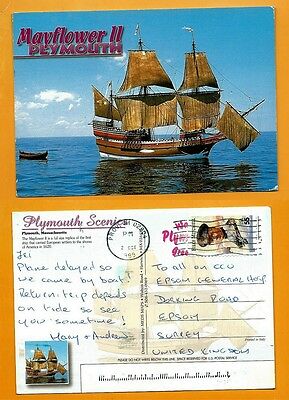 Mayflower II
PLYMOUTH
Plymouth Scenic
Plymouth, Massachusetts
The Mayflower II is a full size replica of the first
ship that carried European settlers to the shores
of America in 1620.
PM
2 DEC
Fri
Plane delayed so
we came by boat!
Return trip depends
on tide so see
you sometime!
Mary + Andrew
To all on CCU
EPSOM GENERAL HOSP
DORKING ROAD
EPSOM
SURREY
UNITED KINGDOM
Printed in Italy
PLEASE DO NOT WRITE BELOW THIS LINE. SPACE RESERVED FOR U.S. POSTAL SERVICE